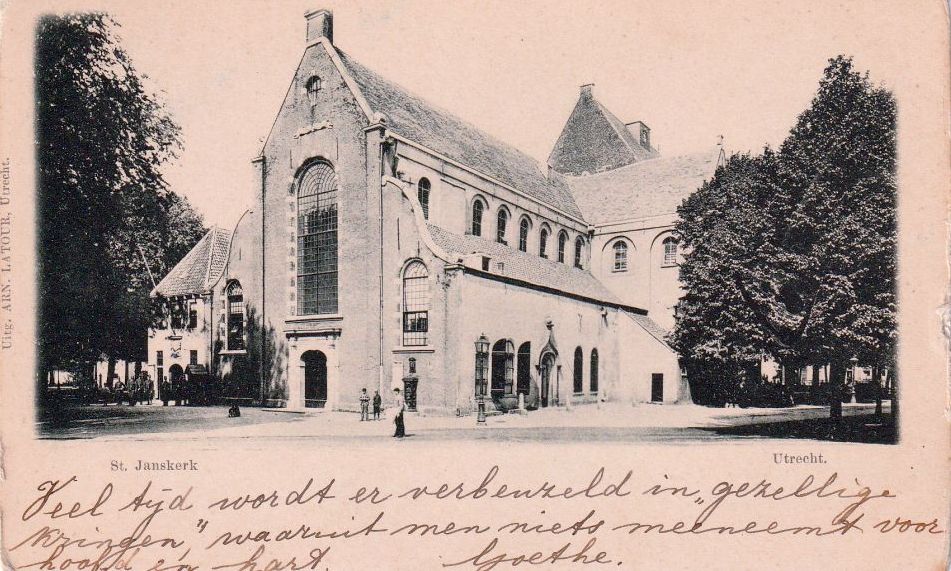 Uitg. ARN. LATOUR, Utrecht.
St. Janskerk
Utrecht.
Veel tijd wordt er verbeuzeld in „gezellige
kringen," waaruit men niets meeneemt voor
hoofd en hart. Goethe.